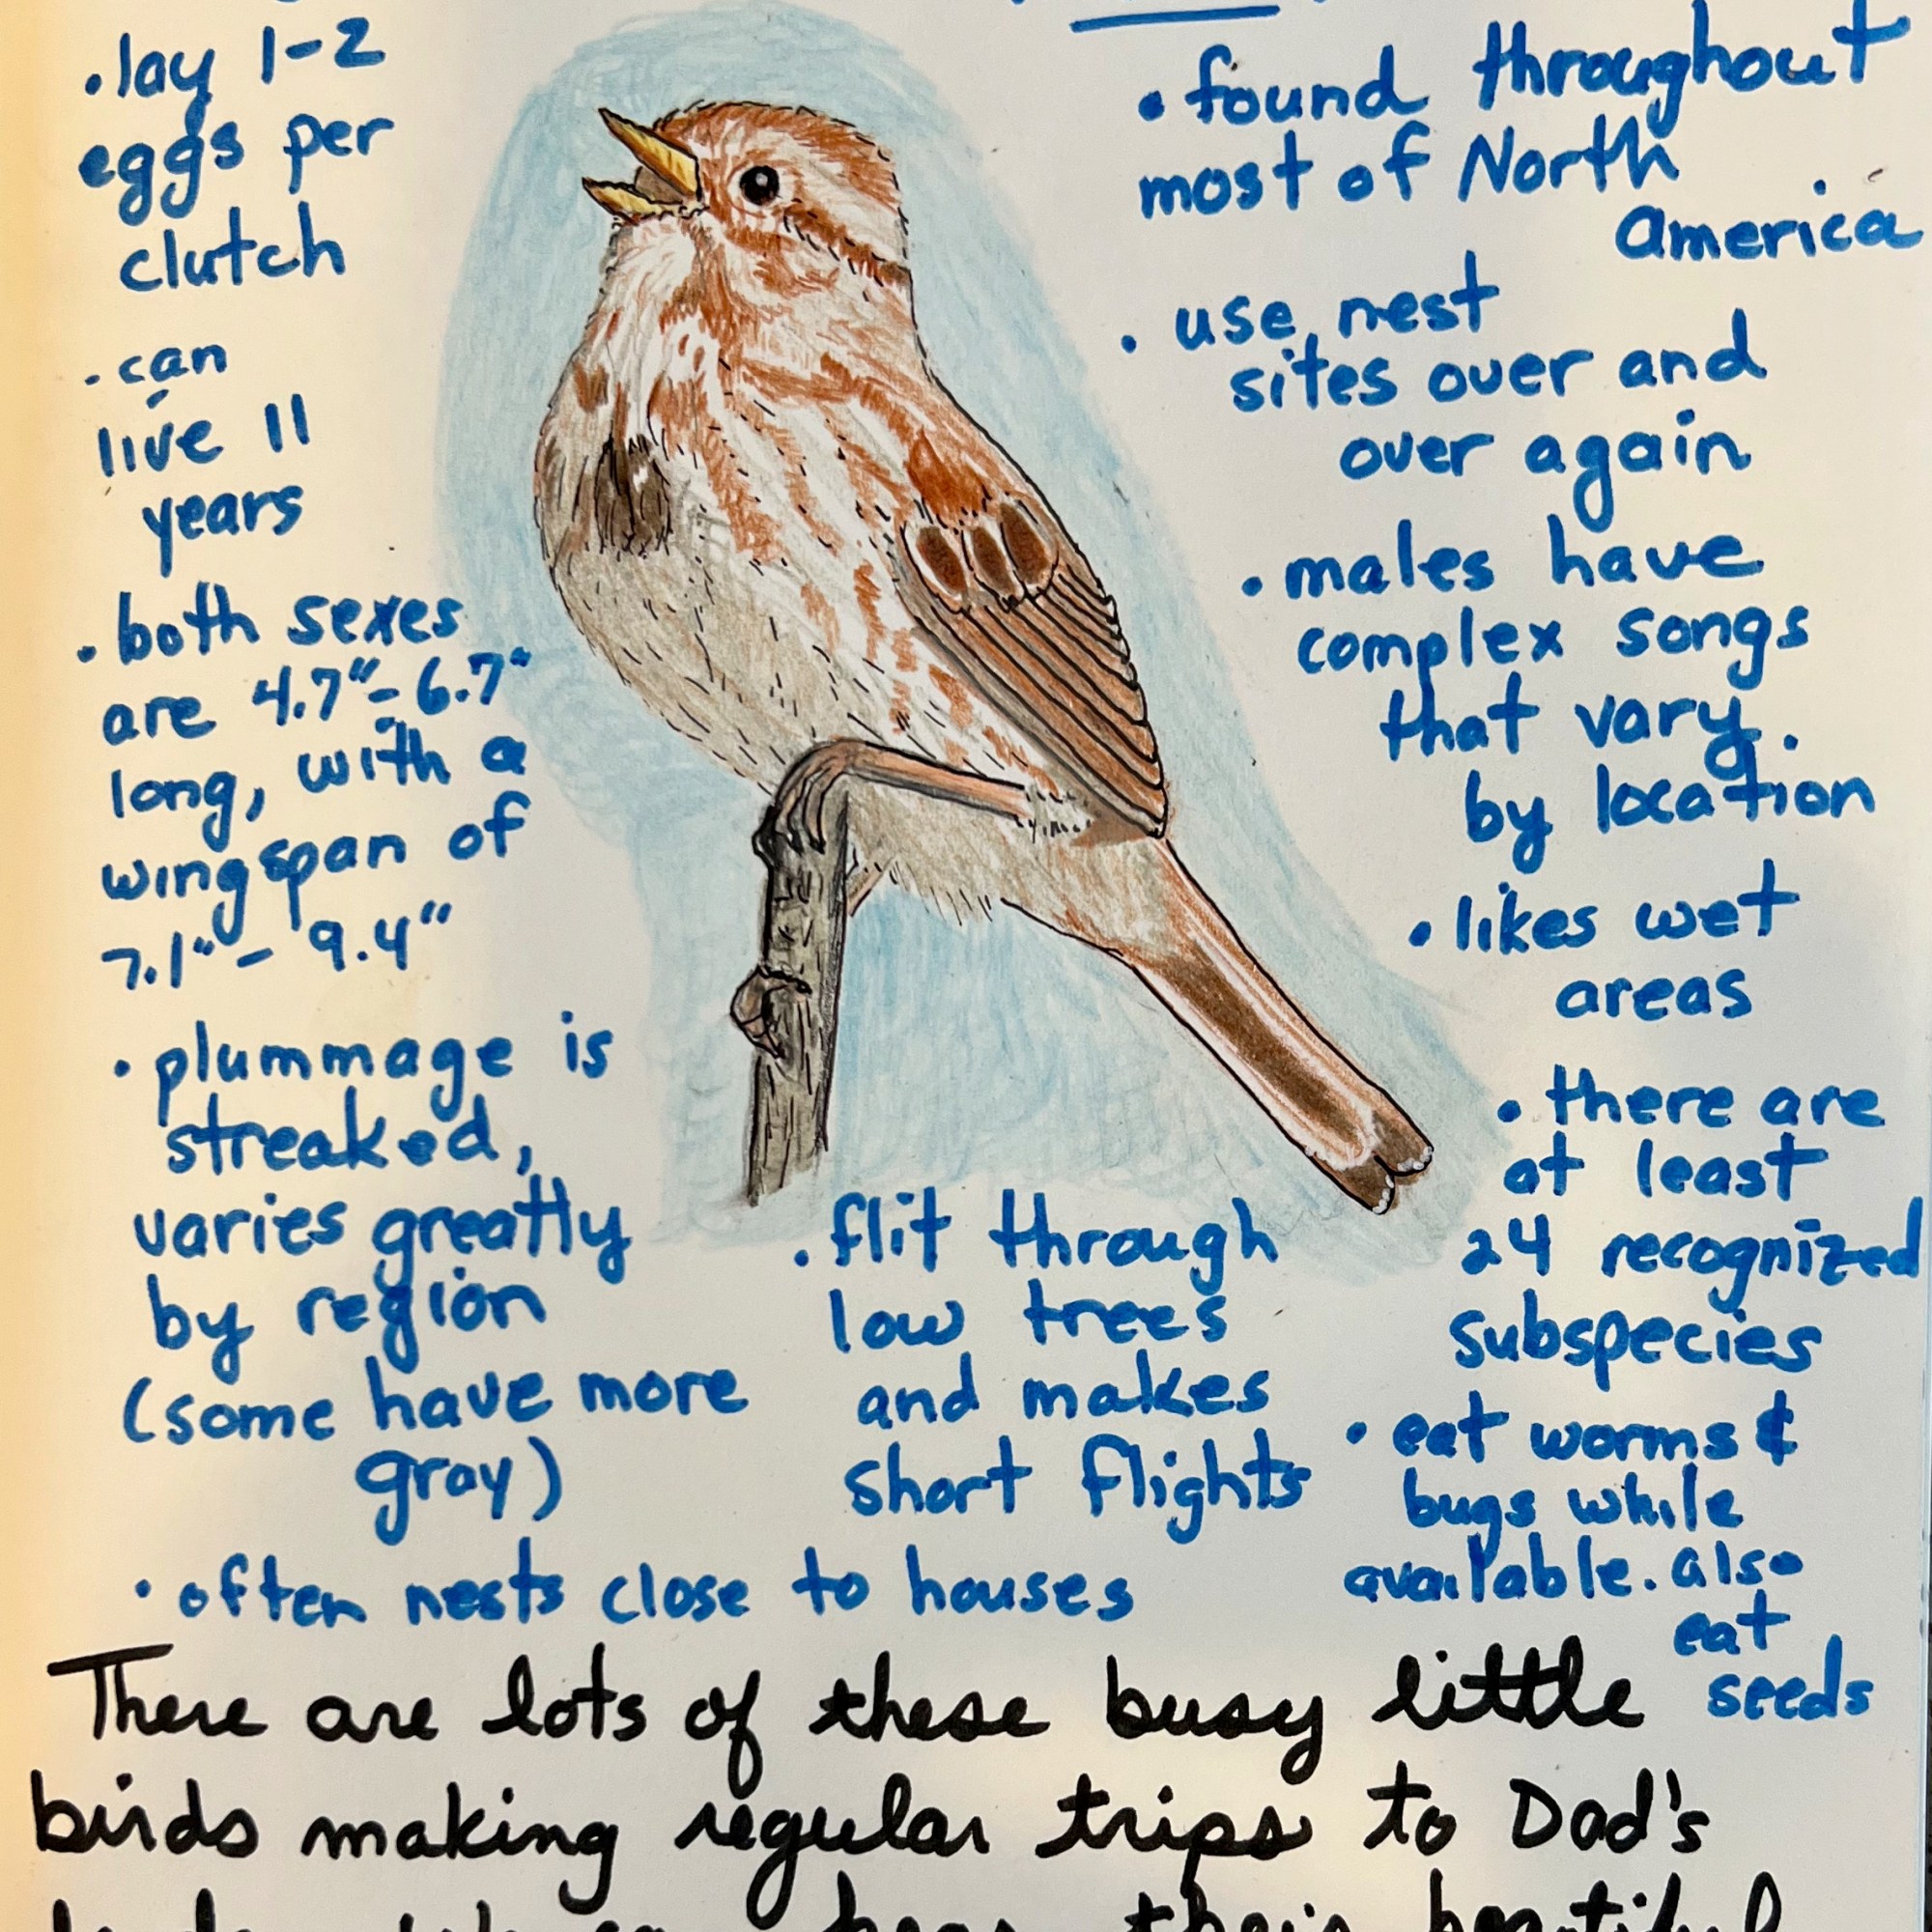 • lay 1-2
eggs per
clutch
• can
live 11
years
• both sexes
are 4.7"-6.7"
long, with a
wingspan of
7.1"- 9.4"
• plummage is
streaked,
varies greatly
by region
(some have more
gray)
• often nests close to houses
• flit through
low trees
and makes
short flights
• found throughout
most of North
America
• use nest
sites over and
over again
• males have
complex songs
that vary
by location
• likes wet
areas
• there are
at least
24 recognized
subspecies
• eat worms &
bugs while
available. also
eat
seeds
There are lots of these busy little
birds making regular trips to Dad's
hear their beautiful